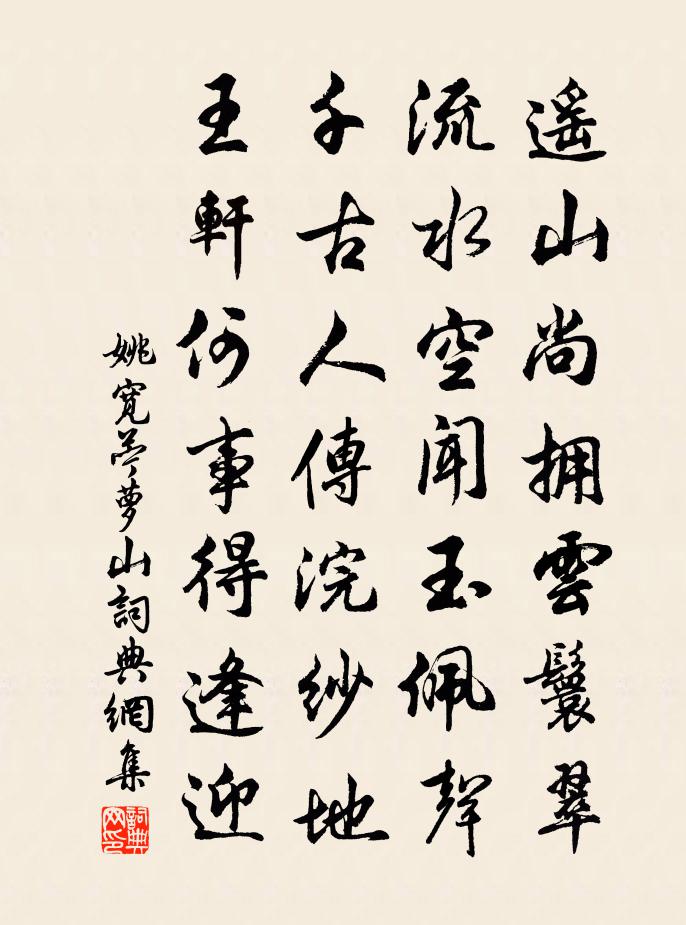 遥山尚拥雲鬟翠
流水空聞玉佩聲
千古人傳浣紗地
王軒何事得逢迎
姚寬苎萝山詞典網集
詞典網印